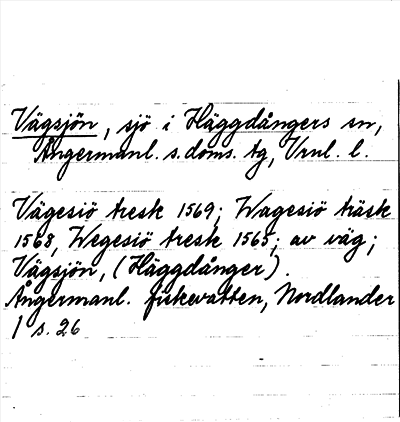 Vägsjön, sjö i Häggdångers sn,
Ångermanl. s. doms. tg, Vrnl. l.
Vägesiö tresk 1569; Wagesiö träsk
1568, Wegesiö tresk 1565; av väg;
Vägsjön, (Häggdånger).
Ångermanl. fiskevatten, Nordlander
1 s. 26